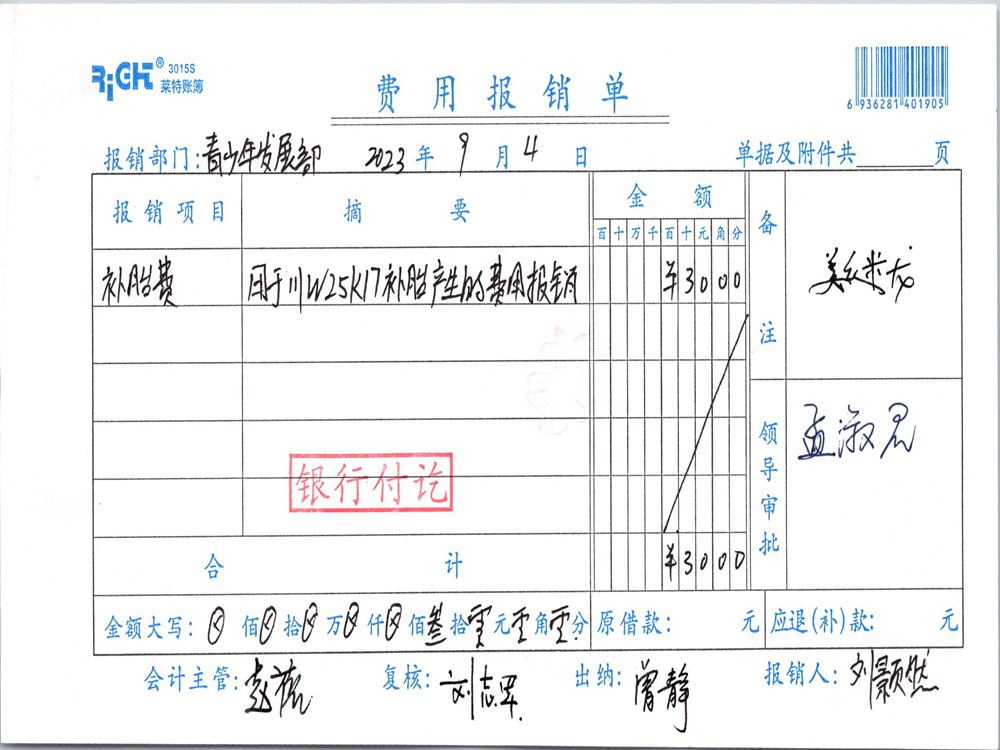 RiGHT® 3015S
莱特账簿
费用报销单
6 936281 401905
报销部门:青少年发展部 2023年9月4日 单据及附件共 页
报销项目 摘要 金额 备注
百十万千百十元角分
补胎费 用于川W25K17补胎产生的费用报销 ¥3000
领导审批 孟淑君
银行付讫
合计 ¥3000
金额大写:⊗佰⊗拾⊗万⊗仟⊗佰叁拾零元零角零分 原借款: 元 应退(补)款: 元
会计主管: 复核:刘志军 出纳:曾静 报销人:刘颢然